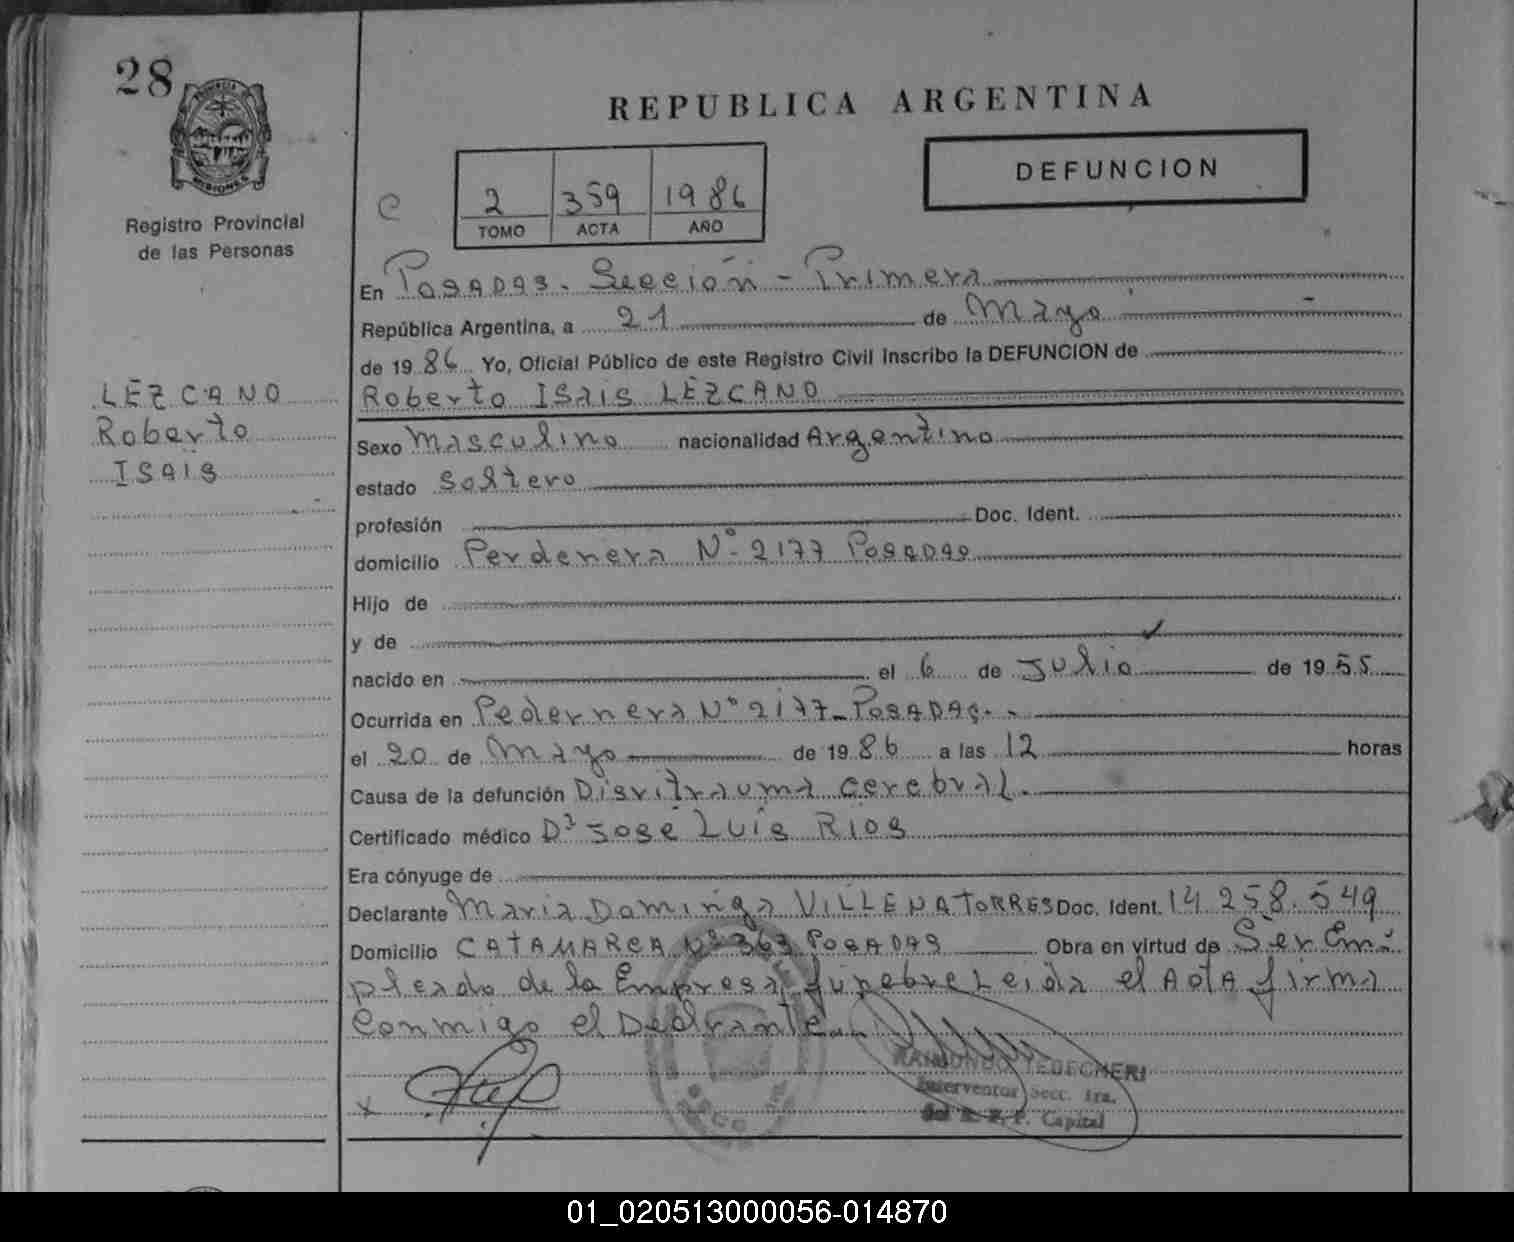 28
PROVINCIA DE
MISIONES
Registro Provincial
de las Personas
LEZCANO
Roberto
ISAIS
REPUBLICA ARGENTINA
DEFUNCION
C
2 359 1986
TOMO ACTA AÑO
En POSADAS. Sección - Primera
República Argentina, a 21 de Mayo
de 1986 Yo, Oficial Público de este Registro Civil Inscribo la DEFUNCION de
Roberto ISAIS LEZCANO
Sexo Masculino nacionalidad Argentino
estado Soltero
profesión Doc. Ident.
domicilio Perdenera Nº 2177 POSADAS
Hijo de
y de
nacido en el 6 de Julio de 1955
Ocurrida en Pedernera Nº 2177 - POSADAS.
el 20 de Mayo de 1986 a las 12 horas
Causa de la defunción Disritrauma cerebral.
Certificado médico Dr José Luis RIOS
Era cónyuge de
Declarante Maria Dominga VILLENA TORRES Doc. Ident. 14 258.549
Domicilio CATAMARCA Nº 363 POSADAS Obra en virtud de Ser Em-
pleado de la Empresa funebre Leida el Acta firma
Conmigo el Declrante
RAIMUNDO TEBECHERI
Interventor Secc. 1ra.
del R. P. P. Capital
01_020513000056-014870